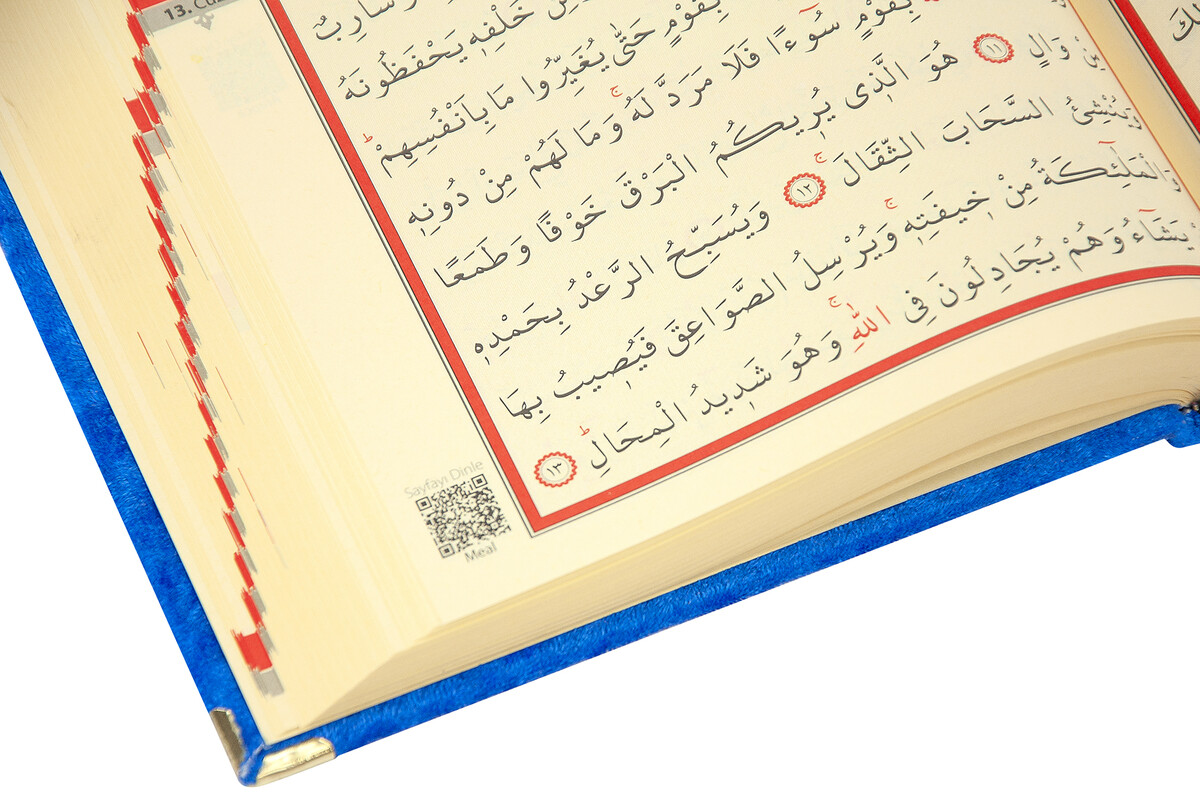 13.
سَارِبٌ
خَلْفِه۪ يَحْفَظُونَهُ
بِقَوْمٍ حَتّٰى يُغَيِّرُوا مَا بِاَنْفُسِهِمْۜ
بِقَوْمٍ سُٓوءًا فَلَا مَرَدَّ لَهُۚ وَمَا لَهُمْ مِنْ دُونِه۪
مِنْ وَالٍ ﴿١١﴾ هُوَ الَّذ۪ى يُر۪يكُمُ الْبَرْقَ خَوْفًا وَطَمَعًا
وَيُنْشِئُ السَّحَابَ الثِّقَالَۚ ﴿١٢﴾ وَيُسَبِّحُ الرَّعْدُ بِحَمْدِه۪
وَالْمَلٰٓئِكَةُ مِنْ خ۪يفَتِه۪ۚ وَيُرْسِلُ الصَّوَاعِقَ فَيُص۪يبُ بِهَا
يَشَٓاءُ وَهُمْ يُجَادِلُونَ فِى اللّٰهِۚ وَهُوَ شَد۪يدُ الْمِحَالِۜ ﴿١٣﴾
Sayfayı Dinle
Meal